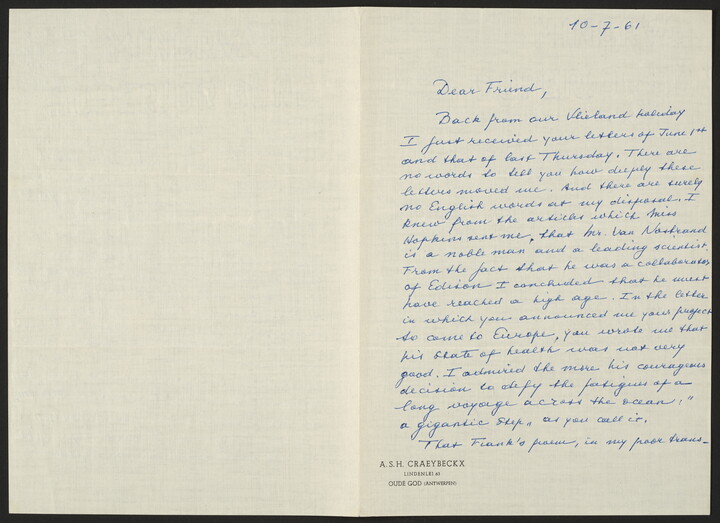 10-7-61
Dear Friend,
Back from our Vlieland holiday
I just received your letters of June 1st
and that of last Thursday. There are
no words to tell you how deeply these
letters moved me. And there are surely
no English words at my disposal. I
knew from the articles which Miss
Hopkins sent me, that Mr. Van Nostrand
is a noble man and a leading scientist.
From the fact that he was a collaborator
of Edison I concluded that he must
have reached a high age. In the letter
in which you announced me your project
to come to Europe, you wrote me that
his state of health was not very
good. I admired the more his courageous
decision to defy the fatigues of a
long voyage across the ocean: "
a gigantic step„ as you call it.
That Frank's poem, in my poor trans-
A.S.H. CRAEYBECKX
LINDENLEI 40
OUDE GOD (ANTWERPEN)